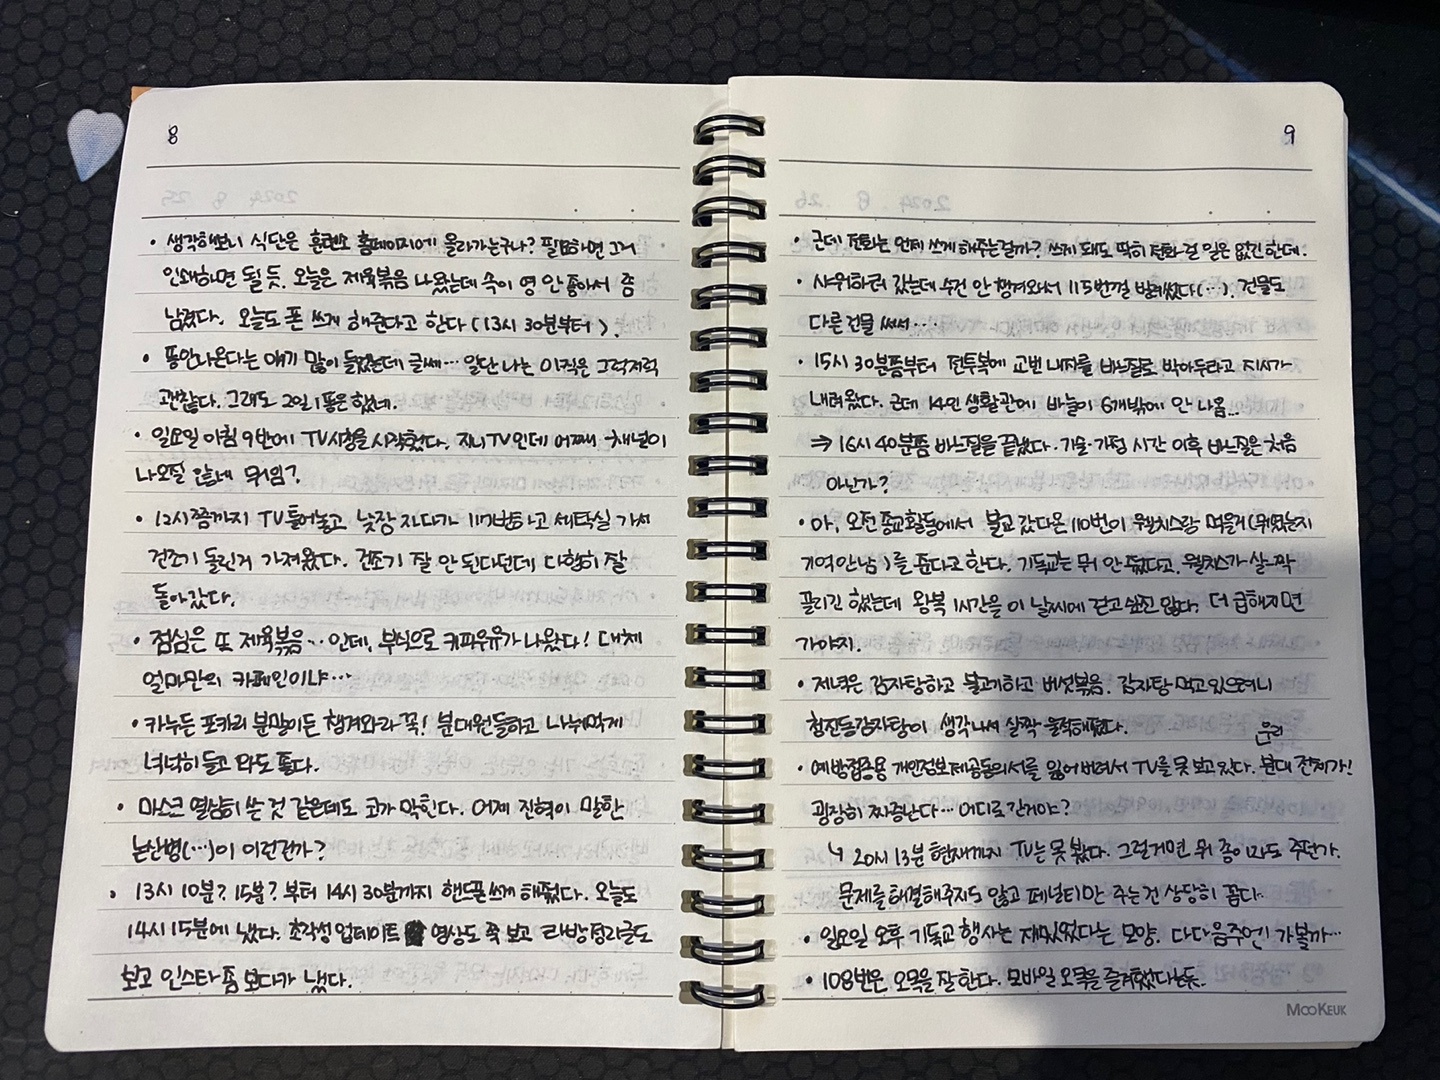 8
• 생각해보니 식단은 훈련소 홈페이지에 올라가는구나? 필요하면 그거
인쇄하면 될 듯. 오늘은 제육볶음 나왔는데 속이 영 안 좋아서 좀
남겼다. 오늘도 폰 쓰게 해준다고 한다 (13시 30분부터).
• 똥안나온다는 얘기 많이 들었는데 글쎄… 일단 나는 아직은 그럭저럭
괜찮다. 그래도 2일 1똥은 했네.
• 일요일 아침 9시반에 TV시청을 시작했다. 지니TV인데 어째 채널이
나오질 않네 뭐임?
• 12시쯤까지 TV 틀어놓고 낮잠 자다가 117번하고 세탁실 가서
건조기 돌린거 가져왔다. 건조기 잘 안 된다던데 다행히 잘
돌아갔다.
• 점심은 또 제육볶음… 인데, 부식으로 커피우유가 나왔다! 대체
얼마만의 카페인이냐…
• 카누든 포카리 분말이든 챙겨와라 꼭! 분대원들하고 나눠먹게
넉넉히 들고 와도 좋다.
• 마스크 열심히 쓴 것 같은데도 코가 막힌다. 어제 진혁이 말한
논산병(…)이 이런건가?
• 13시 10분? 15분? 부터 14시 30분까지 핸드폰 쓰게 해줬다. 오늘도
14시 15분에 냈다. 초각성 업데이트 영상도 쭉 보고 라방정리글도
보고 인스타 좀 보다가 냈다.
9
• 근데 전화는 언제 쓰게 해주는걸까? 쓰게 돼도 딱히 전화 걸 일은 없긴한데.
• 샤워하러 갔는데 수건 안 챙겨와서 115번껄 빌려썼다(…). 건물도
다른 건물 써서…
• 15시 30분쯤부터 전투복에 교번 내지를 바느질로 박아두라고 지시가
내려왔다. 근데 14인 생활관에 바늘이 6개밖에 안 나옴…
⇒ 16시 40분쯤 바느질을 끝냈다. 기술·가정 시간 이후 바느질은 처음
아닌가?
• 아, 오전 종교활동에서 불교 갔다온 110번이 웰치스랑 먹을거(뭐였는지
기억안남)를 준다고 한다. 기독교는 뭐 안 줬다고. 웰치스가 살~짝
끌리긴 했는데 왕복 1시간을 이 날씨에 걷고 싶진 않다. 더 급해지면
가야지.
• 저녁은 감자탕하고 불고기하고 버섯볶음. 감자탕 먹고 있으려니
청진동감자탕이 생각나서 살짝 울적해졌다.
우리
• 예방접종용 개인정보제공동의서를 잃어버려서 TV를 못 보고 있다. 분대 전체가!
굉장히 짜증난다… 어디로 간거야?
↳ 20시 13분 현재까지 TV는 못 봤다. 그럴거면 뭐 종이라도 주던가.
문제를 해결해주지도 않고 페널티만 주는건 상당히 꼽다.
• 일요일 오후 기독교 행사는 재밌었다는 모양. 다다음주엔 가볼까…
• 108번은 오목을 잘 한다. 모바일 오목을 즐겨했다는듯.
MOOKEUK